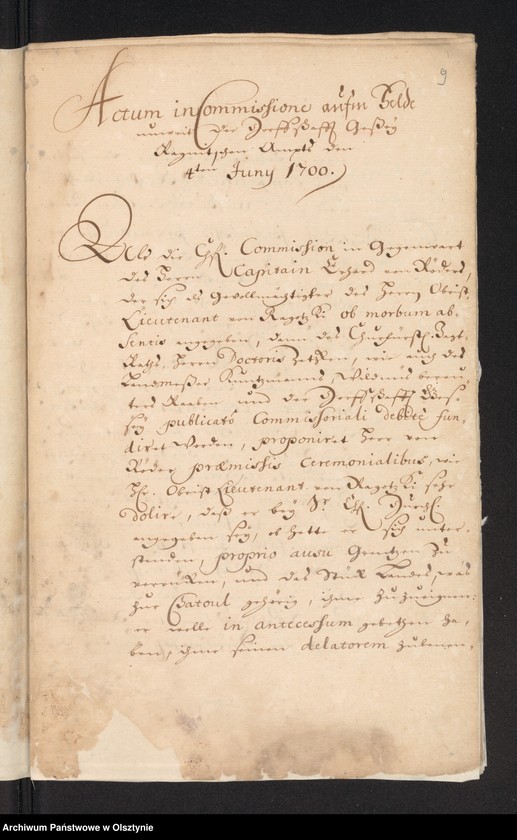 9
Actum in Commissione aufm Felde
unweit der Dorffschafft
Ragnitschen Ampts den
4ten Juny 1700.
Als die Chf. Commission in Gegenwart
des Herrn Capitain Erhard von Röder,
der sich als Gevollmächtigter des Herrn Obrist
Lieutenant von ob morbum ab-
sentis angegeben, dann des Churfürstl. Jagt
Raths Herrn Doctoris wie auch des
Landmeßer Kuntzmanns, Wildnüs berey-
ters Raaben und der Dorffschafft
publicato Commissoriali debite fun-
diret worden, proponiret Herr von
Röder præmissis ceremonialibus, wie
Hr. Obrist Lieutenant von sehr
dolire, daß er bey Sr. Chf. Durchl.
angegeben sey, als hette er sich unter-
standen, proprio ausu Grentzen zu
verrüken, und das Stük Landes, was
zur Chatoul gehörig, ihme zuzueignen;
er wolle in antecessum gebethen ha-
ben, ihme seinen delatorem zubenen-
Archiwum Państwowe w Olsztynie